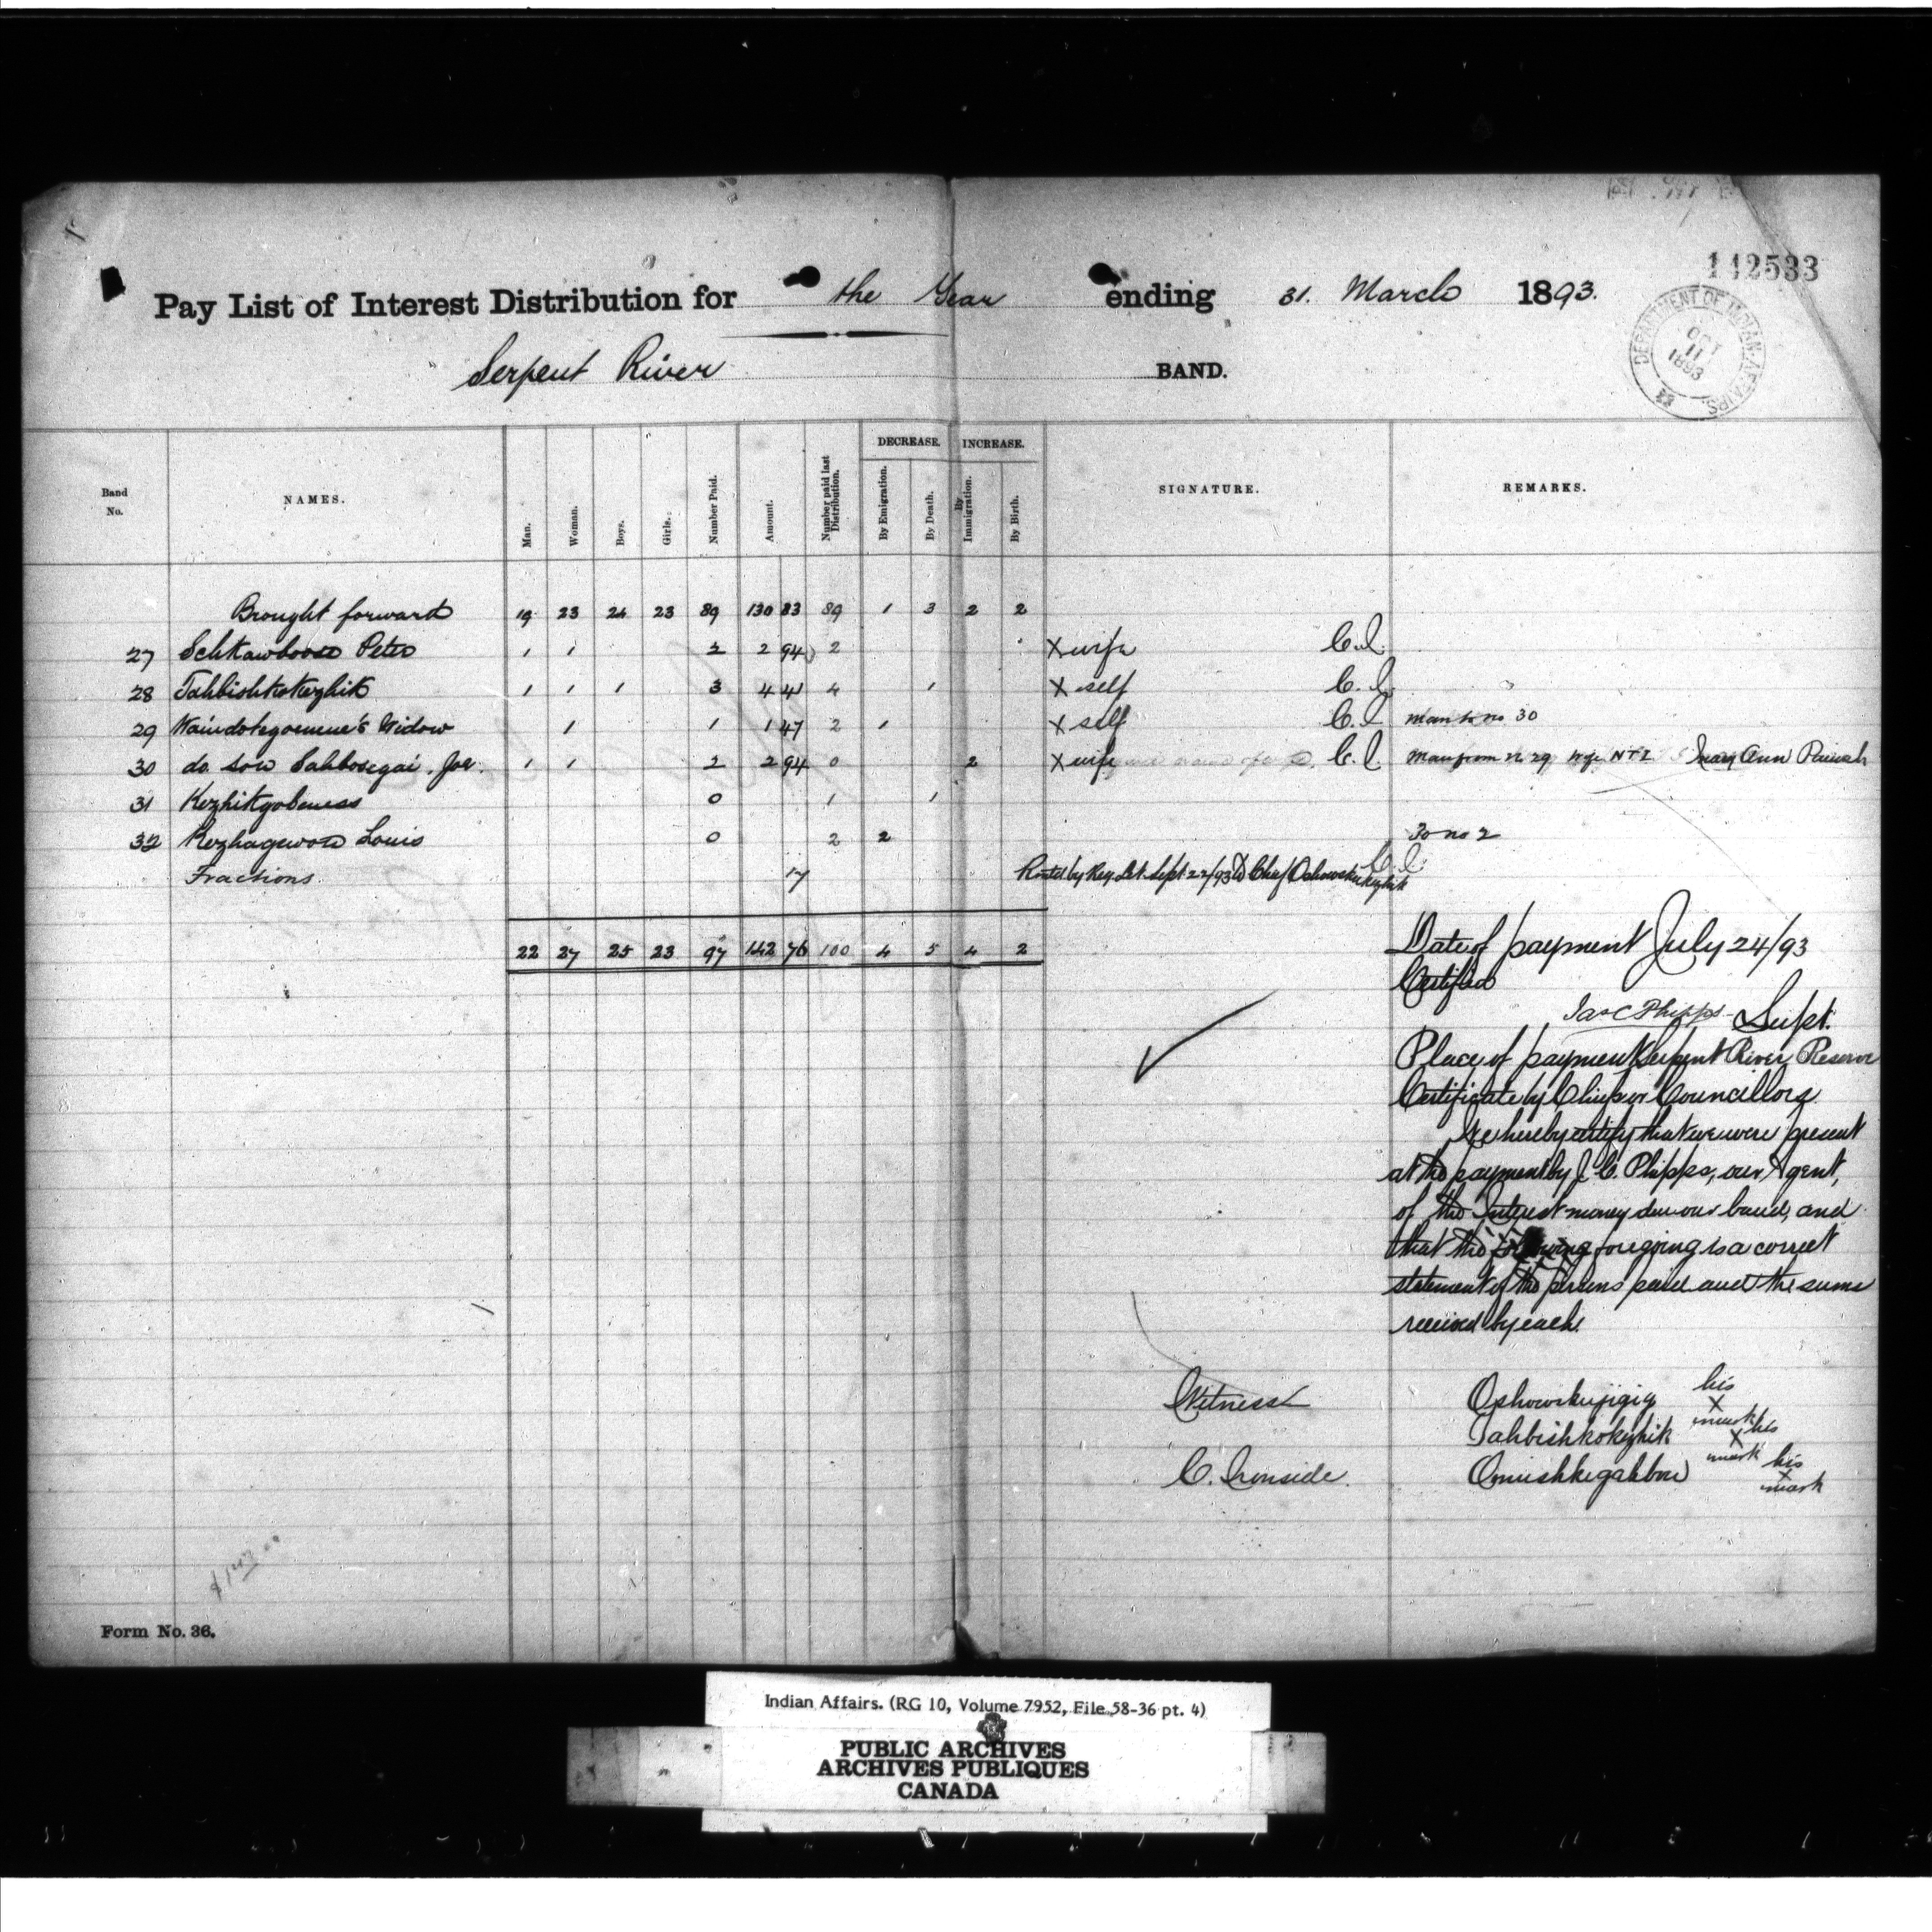 142533
Pay List of Interest Distribution for the Year ending 31. March 1893.
DEPARTMENT OF INDIAN AFFAIRS.
OCT
11
1893
Serpent River BAND.
Band No. NAMES. Man. Woman. Boys. Girls. Number Paid. Amount. Number paid last Distribution. DECREASE. By Emigration. By Death. INCREASE. By Immigration. By Birth. SIGNATURE. REMARKS.
Brought forward 19 23 24 23 89 130 83 89 1 3 2 2
27 Peter 1 1 2 2 94 2 X wife C.I.
28 Tahbishkokezhik 1 1 1 3 4 41 4 1 X self C.I.
29 Widow 1 1 1 47 2 1 X self C.I. man to no 30
30 do son Joe. 1 1 2 2 94 0 2 X wife C.I. Man from no 29 wife NTI Mary Ann
31 0 1 1
32 Louis 0 2 2 To no 2
Fractions 17 by Reg. Let. Sept 22/93 to Chief C I
22 27 25 23 97 142 76 100 4 5 4 2
Date of payment July 24/93
Certified
Jas C Phipps Supt.
Place of payment Serpent River Reserve
Certificate by Chief or Councillors
We hereby certify that we were present
at the payment by J. C. Phipps, our Agent,
of the Interest money due our band, and
that the following foregoing is a correct
statement of the persons paid and the sums
received by each.
Witness Oshowskujigig his X mark
Tahbishkokezhik his X mark
C. Ironside. Omushkegahbow his X mark
Form No. 36.
Indian Affairs. (RG 10, Volume 7952, File 58-36 pt. 4)
PUBLIC ARCHIVES
ARCHIVES PUBLIQUES
CANADA